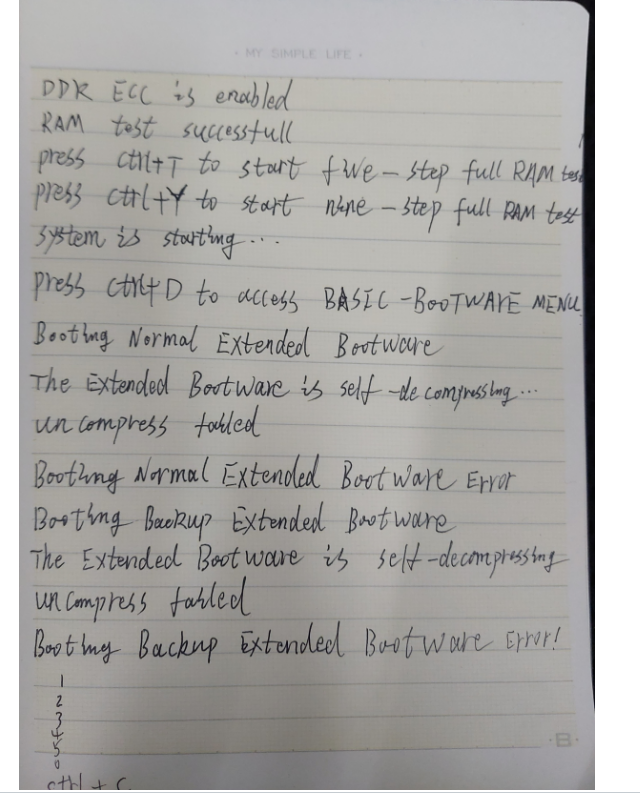 · MY SIMPLE LIFE ·
DDR ECC is enabled
RAM test successfull
press ctrl+T to start five-step full RAM test
press ctrl+Y to start nine-step full RAM test
system is starting...
press ctrl+D to access BASIC-BOOTWARE MENU
Booting Normal Extended Bootware
The Extended Bootware is self-decompressing...
uncompress failed
Booting Normal Extended BootWare Error
Booting Backup Extended Bootware
The Extended Bootware is self-decompressing
uncompress failed
Booting Backup Extended BootWare Error!
1
2
3
4
5
0
ctrl + C
·B·